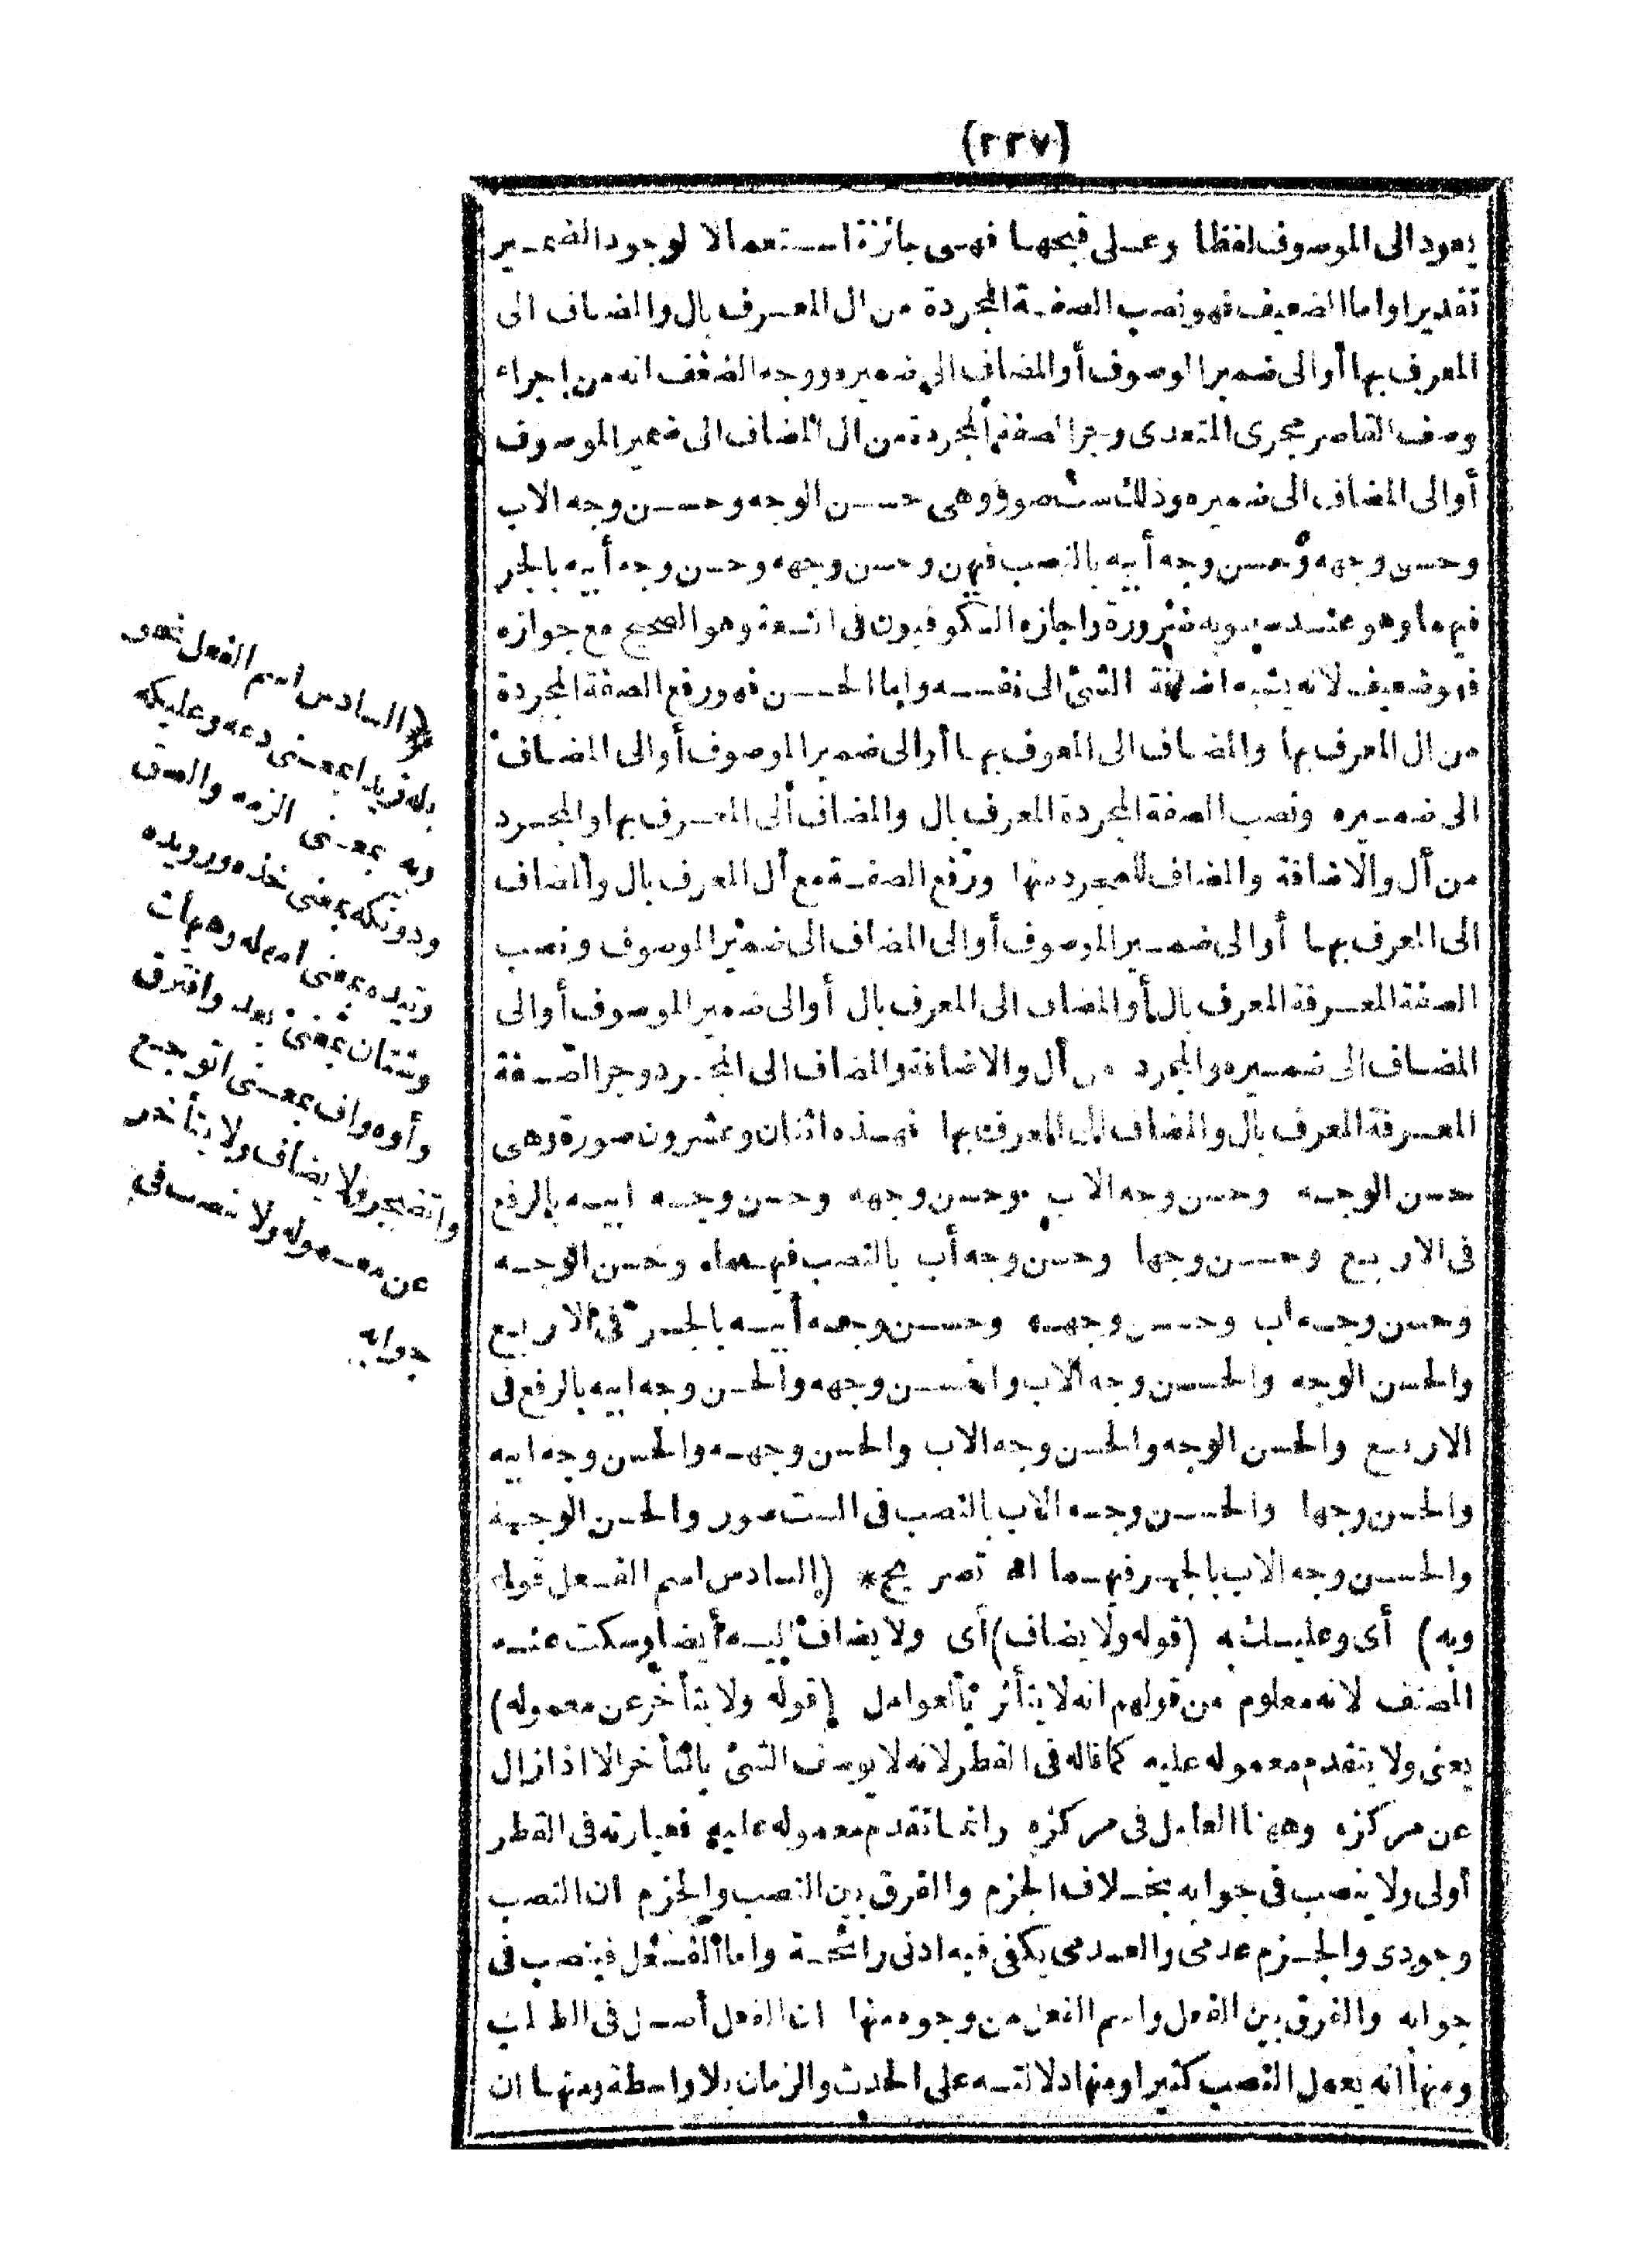 (٢٢٧)
يعود الى الموصوف لفظا وعلى قبحها فهى جائزة استعمالا لوجود الضمير
تقديرا واما الضعيف فهو نصب الصفة المجردة من ال المعرف بال والمضاف الى
المعرف بها أو الى ضمير الموصوف أو المضاف الى ضميره ووجه الضعف انه من اجراء
وصف القاصر مجرى المتعدى وجر الصفة المجردة من ال المضاف الى ضمير الموصوف
أو الى المضاف الى ضميره وذلك ست صور وهى حسن الوجه وحسن وجه الاب
وحسن وجهه وحسن وجه أبيه بالنصب فيهن وحسن وجهه وحسن وجه أبيه بالجر
فيهما وهو عند سيبويه ضرورة واجازه الكوفيون فى السعة وهو الصحيح مع جوازه
فهو ضعيف لانه يشبه اضافة الشئ الى نفسه واما الحسن فهو رفع الصفة المجردة
من ال المعرف بها والمضاف الى المعرف بها أو الى ضمير الموصوف أو الى المضاف
الى ضميره ونصب الصفة المجردة المعرف بال والمضاف الى المعرف بها والمجرد
من أل والاضافة والمضاف للمجرد منها ورفع الصفة مع أل المعرف بال والمضاف
الى المعرف بها أو الى ضمير الموصوف أو الى المضاف الى ضمير الموصوف ونصب
الصفة المعرفة المعرف بال أو المضاف الى المعرف بال أو الى ضمير الموصوف أو الى
المضاف الى ضميره والمجرد من أل والاضافة والمضاف الى المجرد وجر الصفة
المعرفة المعرف بال والمضاف الى المعرف بها فهذه اثنان وعشرون صورة وهى
حسن الوجه وحسن وجه الاب وحسن وجهه وحسن وجه ابيه بالرفع
فى الاربع وحسن وجها وحسن وجه أب بالنصب فيهما وحسن الوجه
وحسن وجه اب وحسن وجهه وحسن وجه أبيه بالجر فى الاربع
والحسن الوجه والحسن وجه الاب والحسن وجهه والحسن وجه ابيه بالرفع فى
الاربع والحسن الوجه والحسن وجه الاب والحسن وجهه والحسن وجه ابيه
والحسن وجها والحسن وجه الاب بالنصب فى الست صور والحسن الوجه
والحسن وجه الاب بالجر فيهما اه تصريح * (السادس اسم الفعل قوله
وبه) أى وعليك به (قوله ولا يضاف) أى ولا يضاف اليه أيضا وسكت عنه
المصنف لانه معلوم من قولهم انه لا يتأثر بالعوامل (قوله ولا يتأخر عن معموله)
يعنى ولا يتقدم معموله عليه كما قاله فى القطر لانه لا يوصف الشئ بالتأخر الا اذا زال
عن مركزه وههنا العامل فى مركزه وانما تقدم معموله عليه فعبارته فى القطر
أولى ولا ينصب فى جوابه بخلاف الجزم والفرق بين النصب والجزم ان النصب
وجودى والجزم عدمى والعدمى يكفى فيه ادنى رائحة واما الفعل فينصب فى
جوابه والفرق بين الفعل واسم الفعل من وجوه منها ان الفعل أصل فى الطلب
ومنها انه يعمل النصب كثيرا ومنها دلالته على الحدث والزمان بلا واسطة ومنها ان
* السادس اسم الفعل نحو
بله زيدا بمعنى دعه وعليكه
وبه بمعنى الزمه والصق
ودونكه بمعنى خذه ورويده
وتيده بمعنى امهله وهيهات
وشتان بمعنى بعد وافترق
وأوه واف بمعنى اتوجع
واتضجر ولا يضاف ولا يتأخر
عن معموله ولا ينصب فى
جوابه